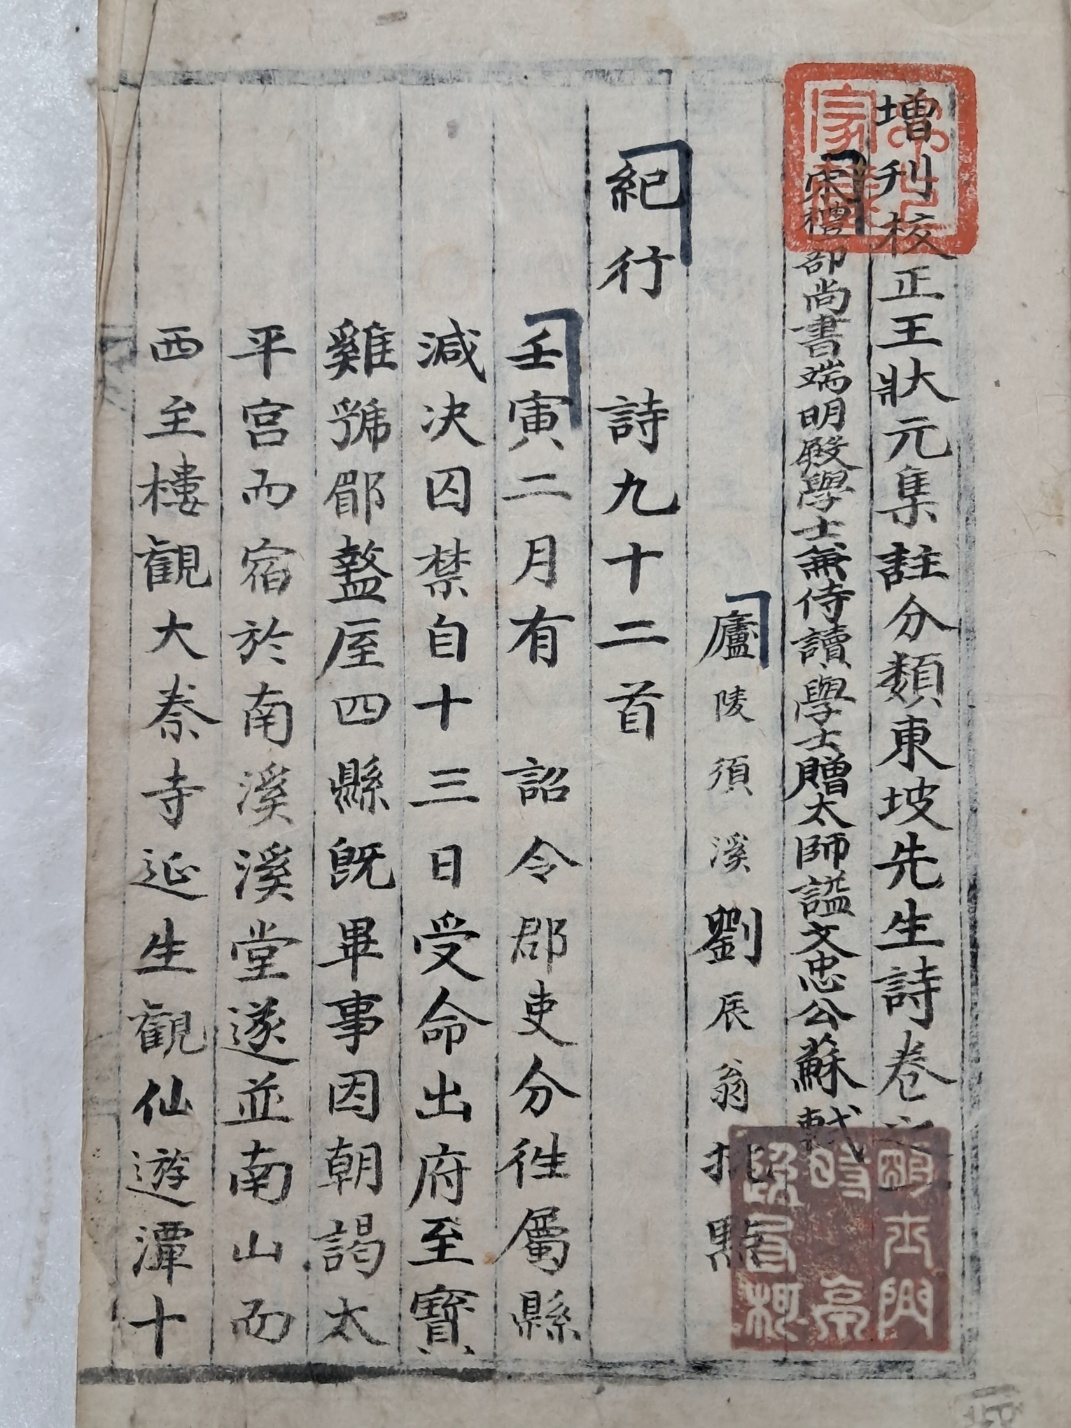 增刊校正王狀元集註分類東坡先生詩卷之
宋禮部尚書端明殿學士兼侍讀學士贈太師謚文忠公蘇軾
廬陵須溪劉辰翁批點
紀行 詩九十二首
壬寅二月有 詔令郡吏分徃屬縣
減决囚禁自十三日受命出府至寳
雞虢郿盩厔四縣旣畢事因朝謁太
平宫而宿於南溪溪堂遂並南山而
西至樓觀大秦寺延生觀仙遊潭十